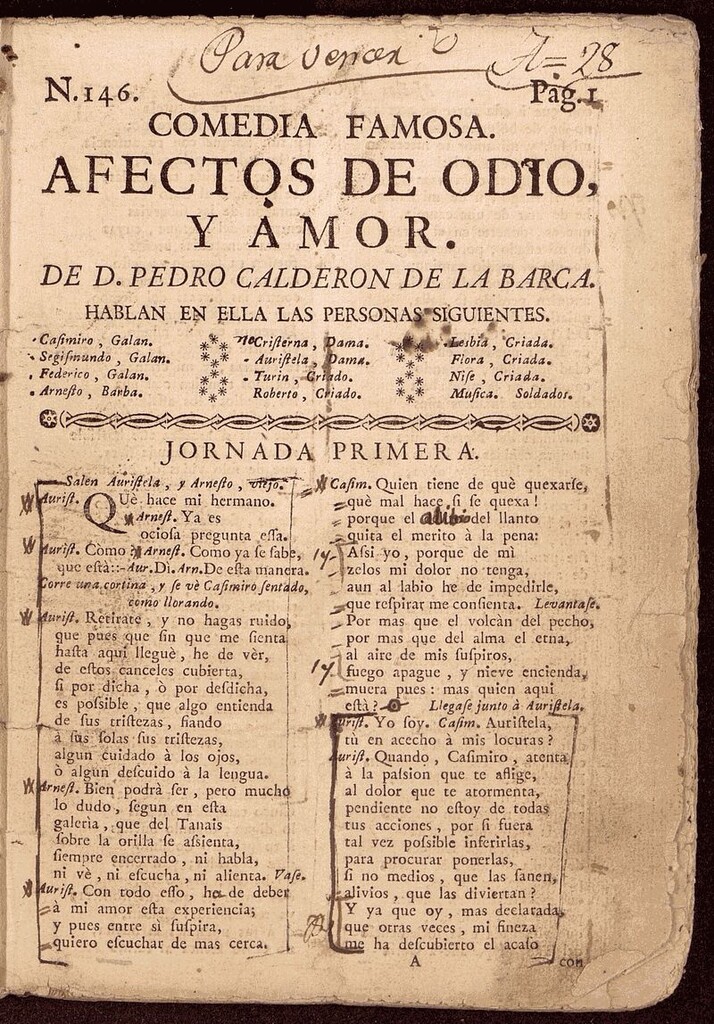 Para vencer
A=28
N.146.
Pag.1
COMEDIA FAMOSA.
AFECTOS DE ODIO,
Y AMOR.
DE D. PEDRO CALDERON DE LA BARCA.
HABLAN EN ELLA LAS PERSONAS SIGUIENTES.
Casimiro, Galan.
Segismundo, Galan.
Federico, Galan.
Arnesto, Barba.
Cristerna, Dama.
Auristela, Dama.
Turin, Criado.
Roberto, Criado.
Lesbia, Criada.
Flora, Criada.
Nise, Criada.
Musica. Soldados.
JORNADA PRIMERA.
Salen Auristela, y Arnesto, viejo.
Aurist. QUè hace mi hermano.
Arnest. Ya es
ociosa pregunta essa.
Aurist. Còmo? Arnest. Como ya se sabe,
que està::- Aur. Dì. Arn. De esta manera.
Corre una cortina, y se vè Casimiro sentado,
como llorando.
Aurist. Retirate, y no hagas ruido,
que pues que sin que me sienta
hasta aqui lleguè, he de vèr,
de estos canceles cubierta,
si por dicha, ò por desdicha,
es possible, que algo entienda
de sus tristezas, fiando
à sus solas sus tristezas,
algun cuidado à los ojos,
ò algun descuido à la lengua.
Arnest. Bien podrà ser, pero mucho
lo dudo, segun en esta
galerìa, que del Tanais
sobre la orilla se assienta,
siempre encerrado, ni habla,
ni vè, ni escucha, ni alienta. Vase.
Aurist. Con todo esso, ha de deber
à mi amor esta experiencia;
y pues entre sì suspira,
quiero escuchar de mas cerca.
Casim. Quien tiene de què quexarse,
què mal hace si se quexa!
porque el alibio del llanto
quita el merito à la pena:
Assi yo, porque de mì
zelos mi dolor no tenga,
aun al labio he de impedirle,
que respirar me consienta. Levantase.
Por mas que el volcàn del pecho,
por mas que del alma el etna,
al aire de mis suspiros,
fuego apague, y nieve encienda,
muera pues: mas quien aqui
està? Llegase junto à Auristela.
Aurist. Yo soy. Casim. Auristela,
tù en acecho à mis locuras?
Aurist. Quando, Casimiro, atenta
à la passion que te aflige,
al dolor que te atormenta,
pendiente no estoy de todas
tus acciones, por si fuera
tal vez possible inferirlas,
para procurar ponerlas,
si no medios, que las sanen,
alivios, que las diviertan?
Y ya que oy, mas declarada,
que otras veces, mi fineza
me ha descubierto el acaso
A
con